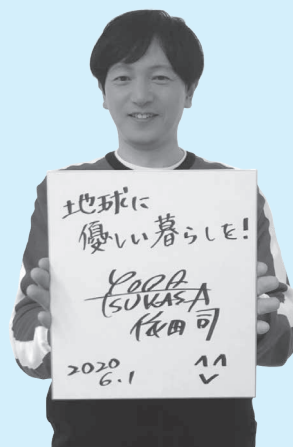 地球に
優しい暮らしを!
YODA
TSUKASA
依田 司
2020
6.1
^^